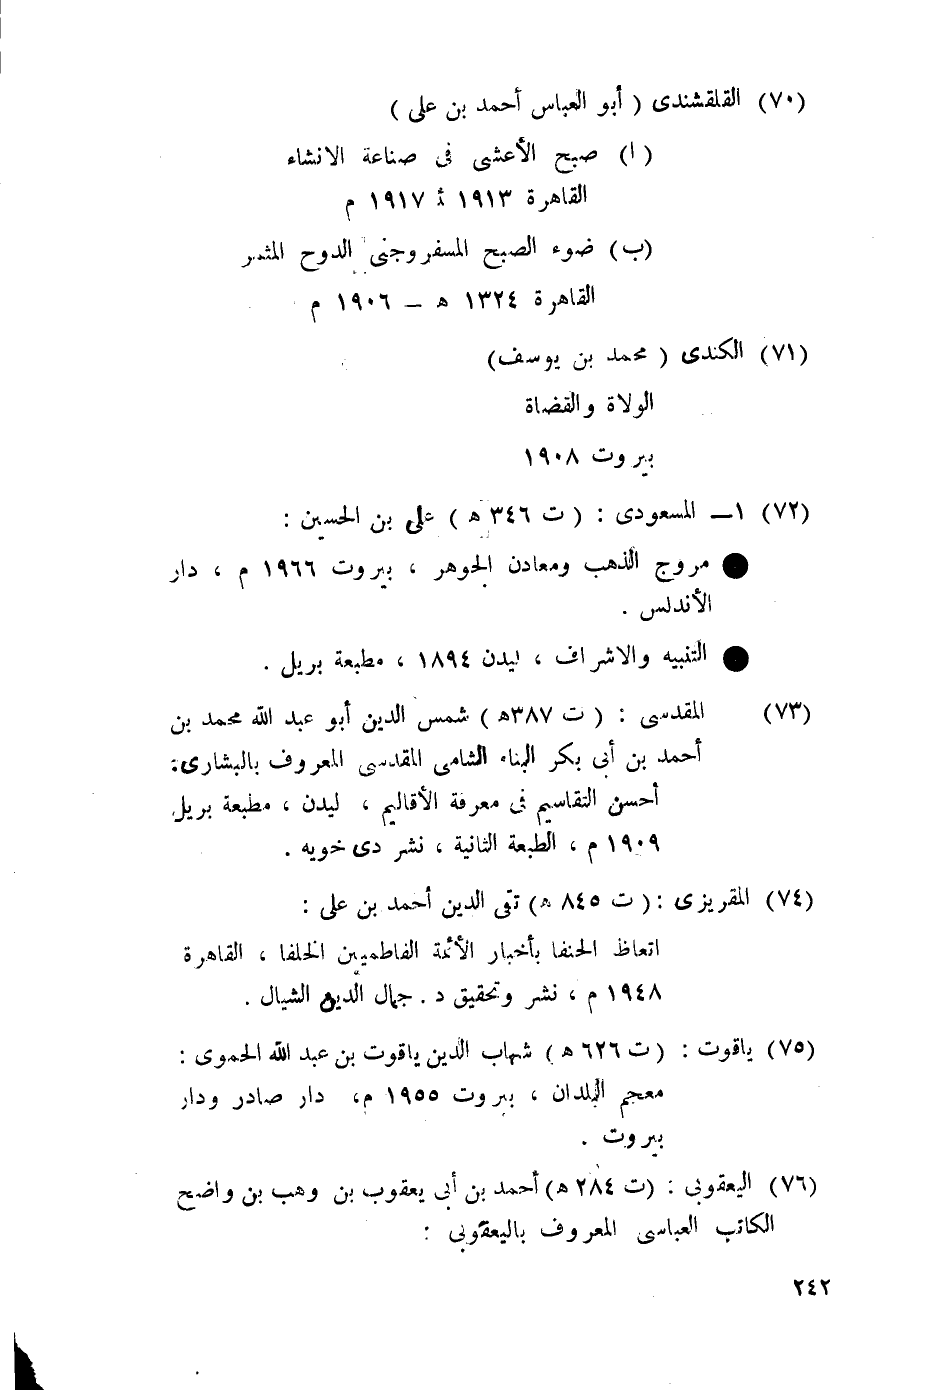 (٧٠) القلقشندى ( أبو العباس أحمد بن على )
( ا ) صبح الأعشى فى صناعة الانشاء
القاهرة ١٩١٣ ١٩١٧ م
(ب) ضوء الصبح المسفر وجنى الدوح المثمر
القاهرة ١٣٢٤ ه – ١٩٠٦ م
(٧١) الكندى ( محمد بن يوسف)
الولاة والقضاة
بيروت ١٩٠٨
(٧٢) ١ــ المسعودى : ( ت ٣٤٦ ه ) على بن الحسين :
● مروج الذهب ومعادن الجوهر ، بيروت ١٩٦٦ م ، دار
الأندلس .
● التنبيه والاشراف ، ليدن ١٨٩٤ ، مطبعة بريل .
(٧٣) المقدسى : ( ت ٣٨٧ه ) شمس الدين أبو عبد الله محمد بن
أحمد بن أبى بكر البناء الشامى المقدسى المعروف بالبشارى:
أحسن التقاسيم فى معرفة الأقاليم ، ليدن ، مطبعة بريل
١٩٠٩ م ، الطبعة الثانية ، نشر دى خويه .
(٧٤) المقريزى : ( ت ٨٤٥ ه ) تقى الدين أحمد بن على :
اتعاظ الحنفا بأخبار الأئمة الفاطميين الخلفا ، القاهرة
١٩٤٨ م ، نشر وتحقيق د . جمال الدين الشيال .
(٧٥) ياقوت : ( ت ٦٢٦ ه ) شهاب الدين ياقوت بن عبد الله الحموى :
معجم البلدان ، بيروت ١٩٥٥ م، دار صادر ودار
بيروت .
(٧٦) اليعقوبى : (ت ٢٨٤ ه) أحمد بن أبى يعقوب بن وهب بن واضح
الكاتب العباسى المعروف باليعقوبى :
٢٤٢